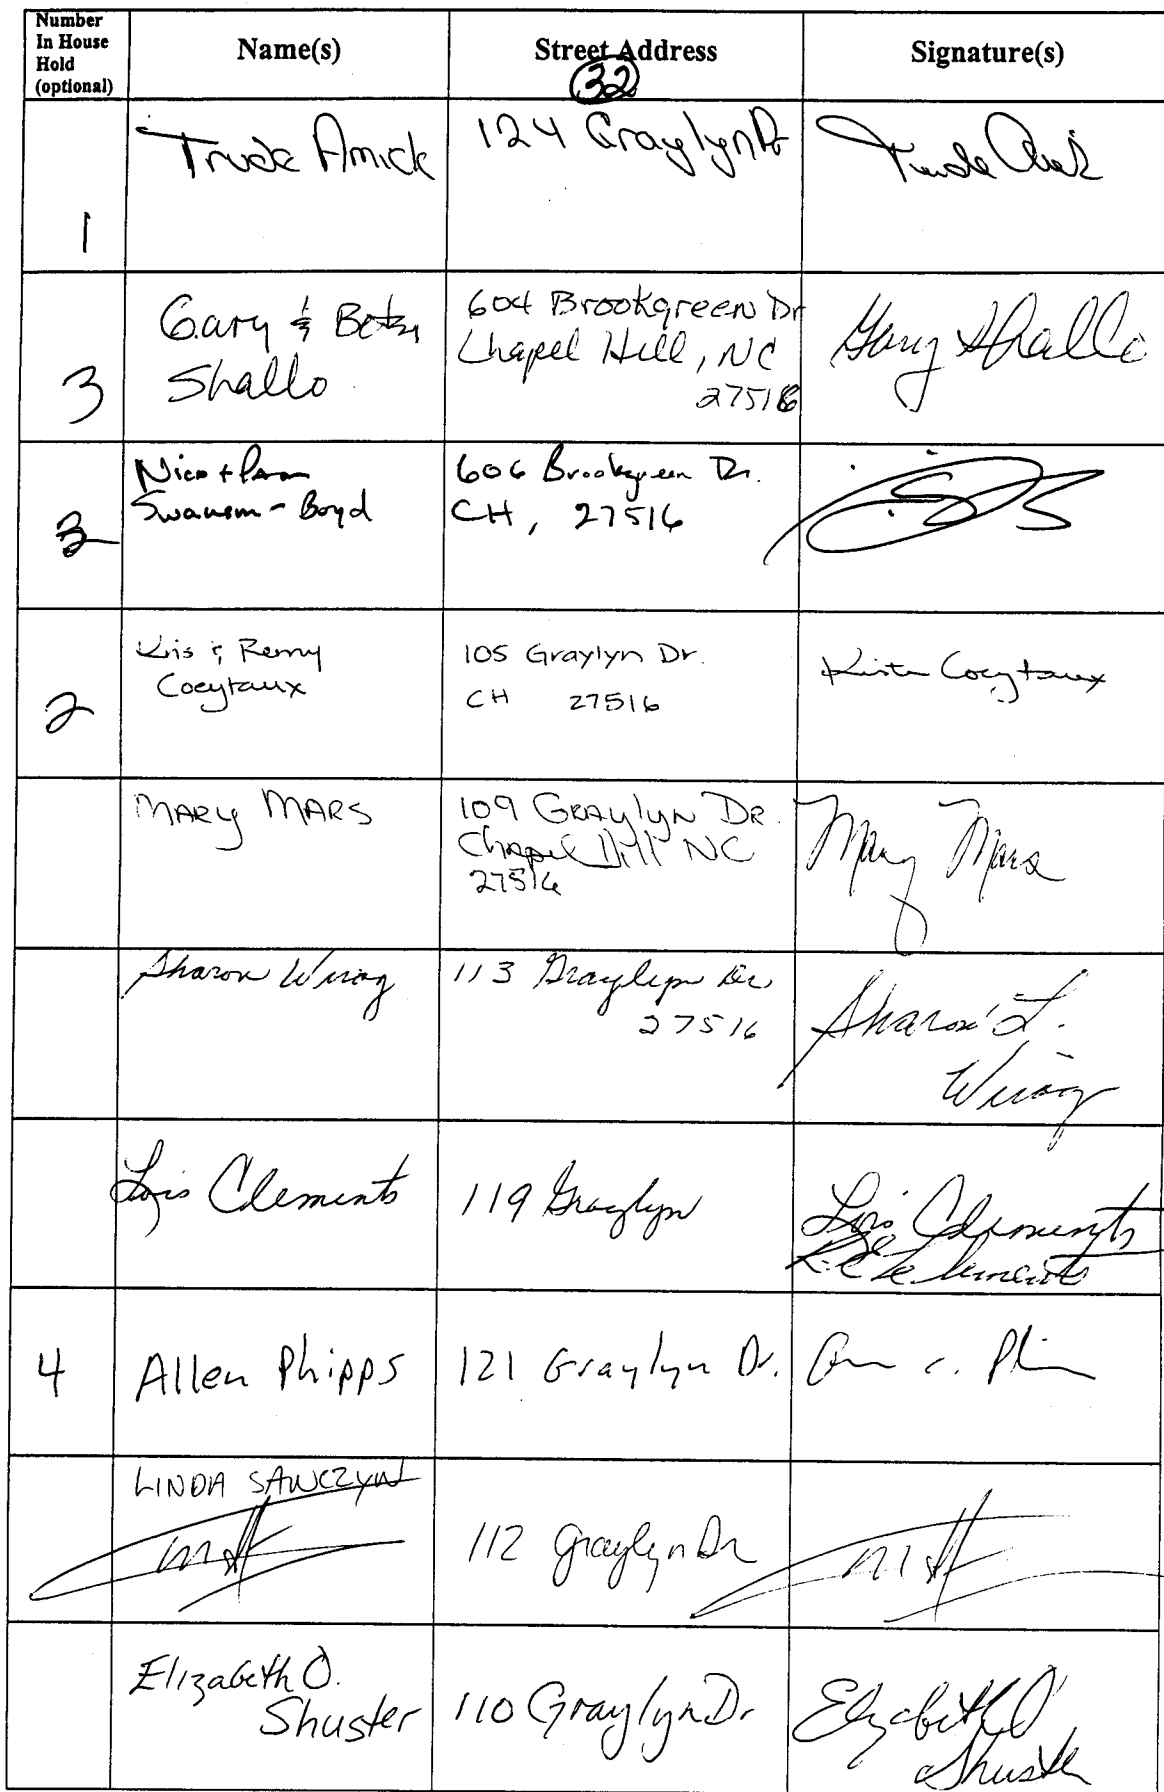 Number
In House
Hold
(optional)
Name(s)
Street Address
Signature(s)
32
1
Trude Amick
124 Graylyn Dr
Trude Amick
3
Gary & Betsy
Shallo
604 Brookgreen Dr
Chapel Hill, NC
27516
Gary Shallo
3
Nico + Pam
Swanson-Boyd
606 Brookgreen Dr.
CH, 27516
2
Kris & Remy
Coeytaux
105 Graylyn Dr.
CH 27516
Coeytaux
MARY MARS
109 GRAYLYN DR.
Chapel Hill NC
27516
Mary Mars
Sharon Wirag
113 Graylyn Dr.
27516
Sharon L.
Wirag
Lois Clements
119 Graylyn
Lois Clements
Clements
4
Allen Phipps
121 Graylyn Dr.
LINDA SAWCZYN
112 Graylyn Dr
Elizabeth O.
Shuster
110 Graylyn Dr
Elizabeth O
Shuster